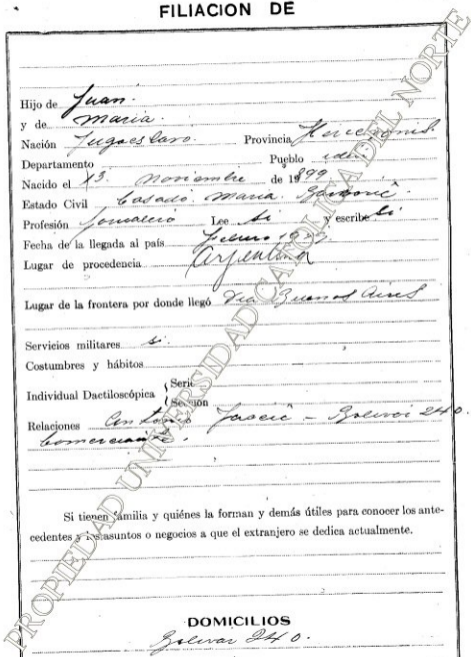 FILIACION DE
Hijo de Juan.
y de Maria
Nación Jugoeslavo. Provincia
Departamento Pueblo idem
Nacido el 13. Noviembre de 1899
Estado Civil Casado. Maria
Profesión Jornalero Lee si y escribe si
Fecha de la llegada al país Febrero
Lugar de procedencia Argentina
Lugar de la frontera por donde llegó Via Buenos Aires
Servicios militares si.
Costumbres y hábitos
Individual Dactiloscópica { Serie
Sección
Relaciones Antonio - Bolivar 240.
Comerciante.
Si tienen familia y quiénes la forman y demás útiles para conocer los ante-
cedentes y los asuntos o negocios a que el extranjero se dedica actualmente.
DOMICILIOS
Bolivar 240.
PROPIEDAD UNIVERSIDAD CATOLICA DEL NORTE